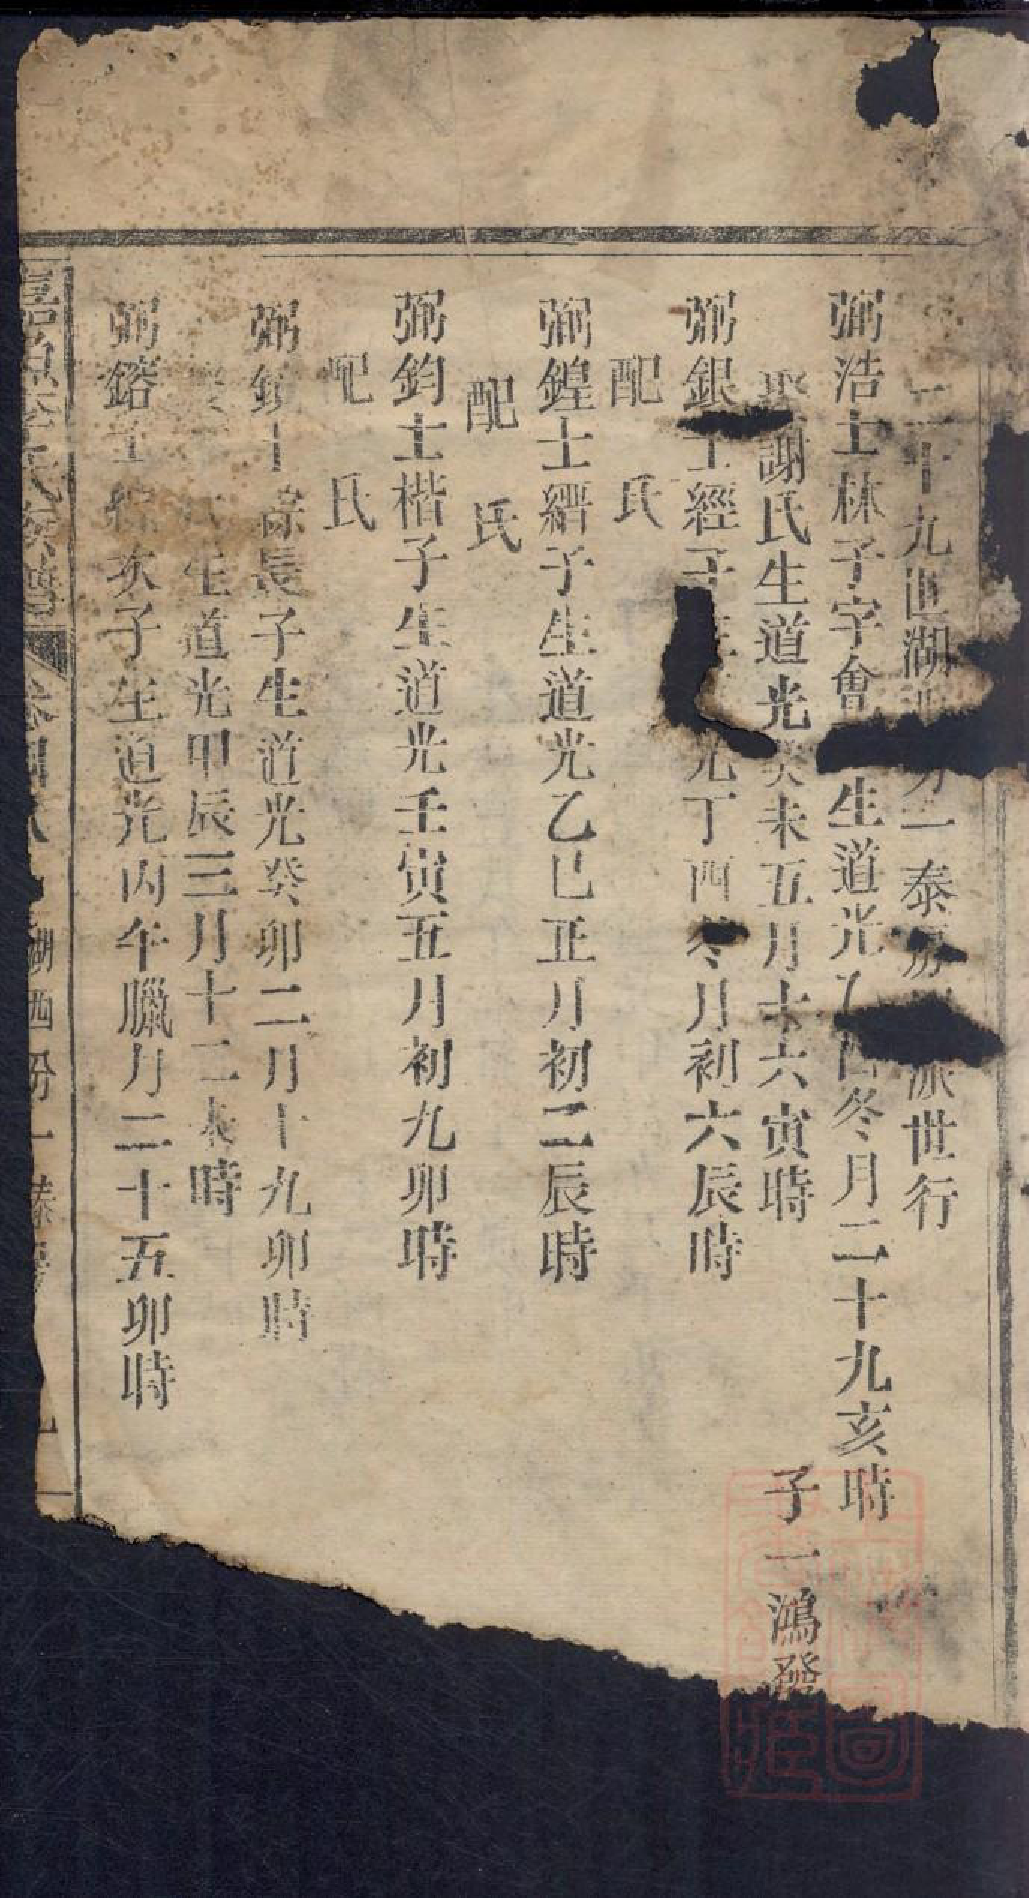 二十九世湖 一泰 派世行
弼浩士林子字會 生道光 冬月二十九亥時
謝氏生道光癸未五月十六寅時 子一鴻發
弼銀士經子 光丁酉冬月初六辰時
配 氏
弼鍠士縉子生道光乙巳正月初二辰時
配 氏
弼鈞士楷子生道光壬寅五月初九卯時
配 氏
弼 長子生道光癸卯二月十九卯時
生道光甲辰三月十二未時
弼鎔士 次子生道光丙午臘月二十五卯時
氏 譜 卷 湖西分一泰